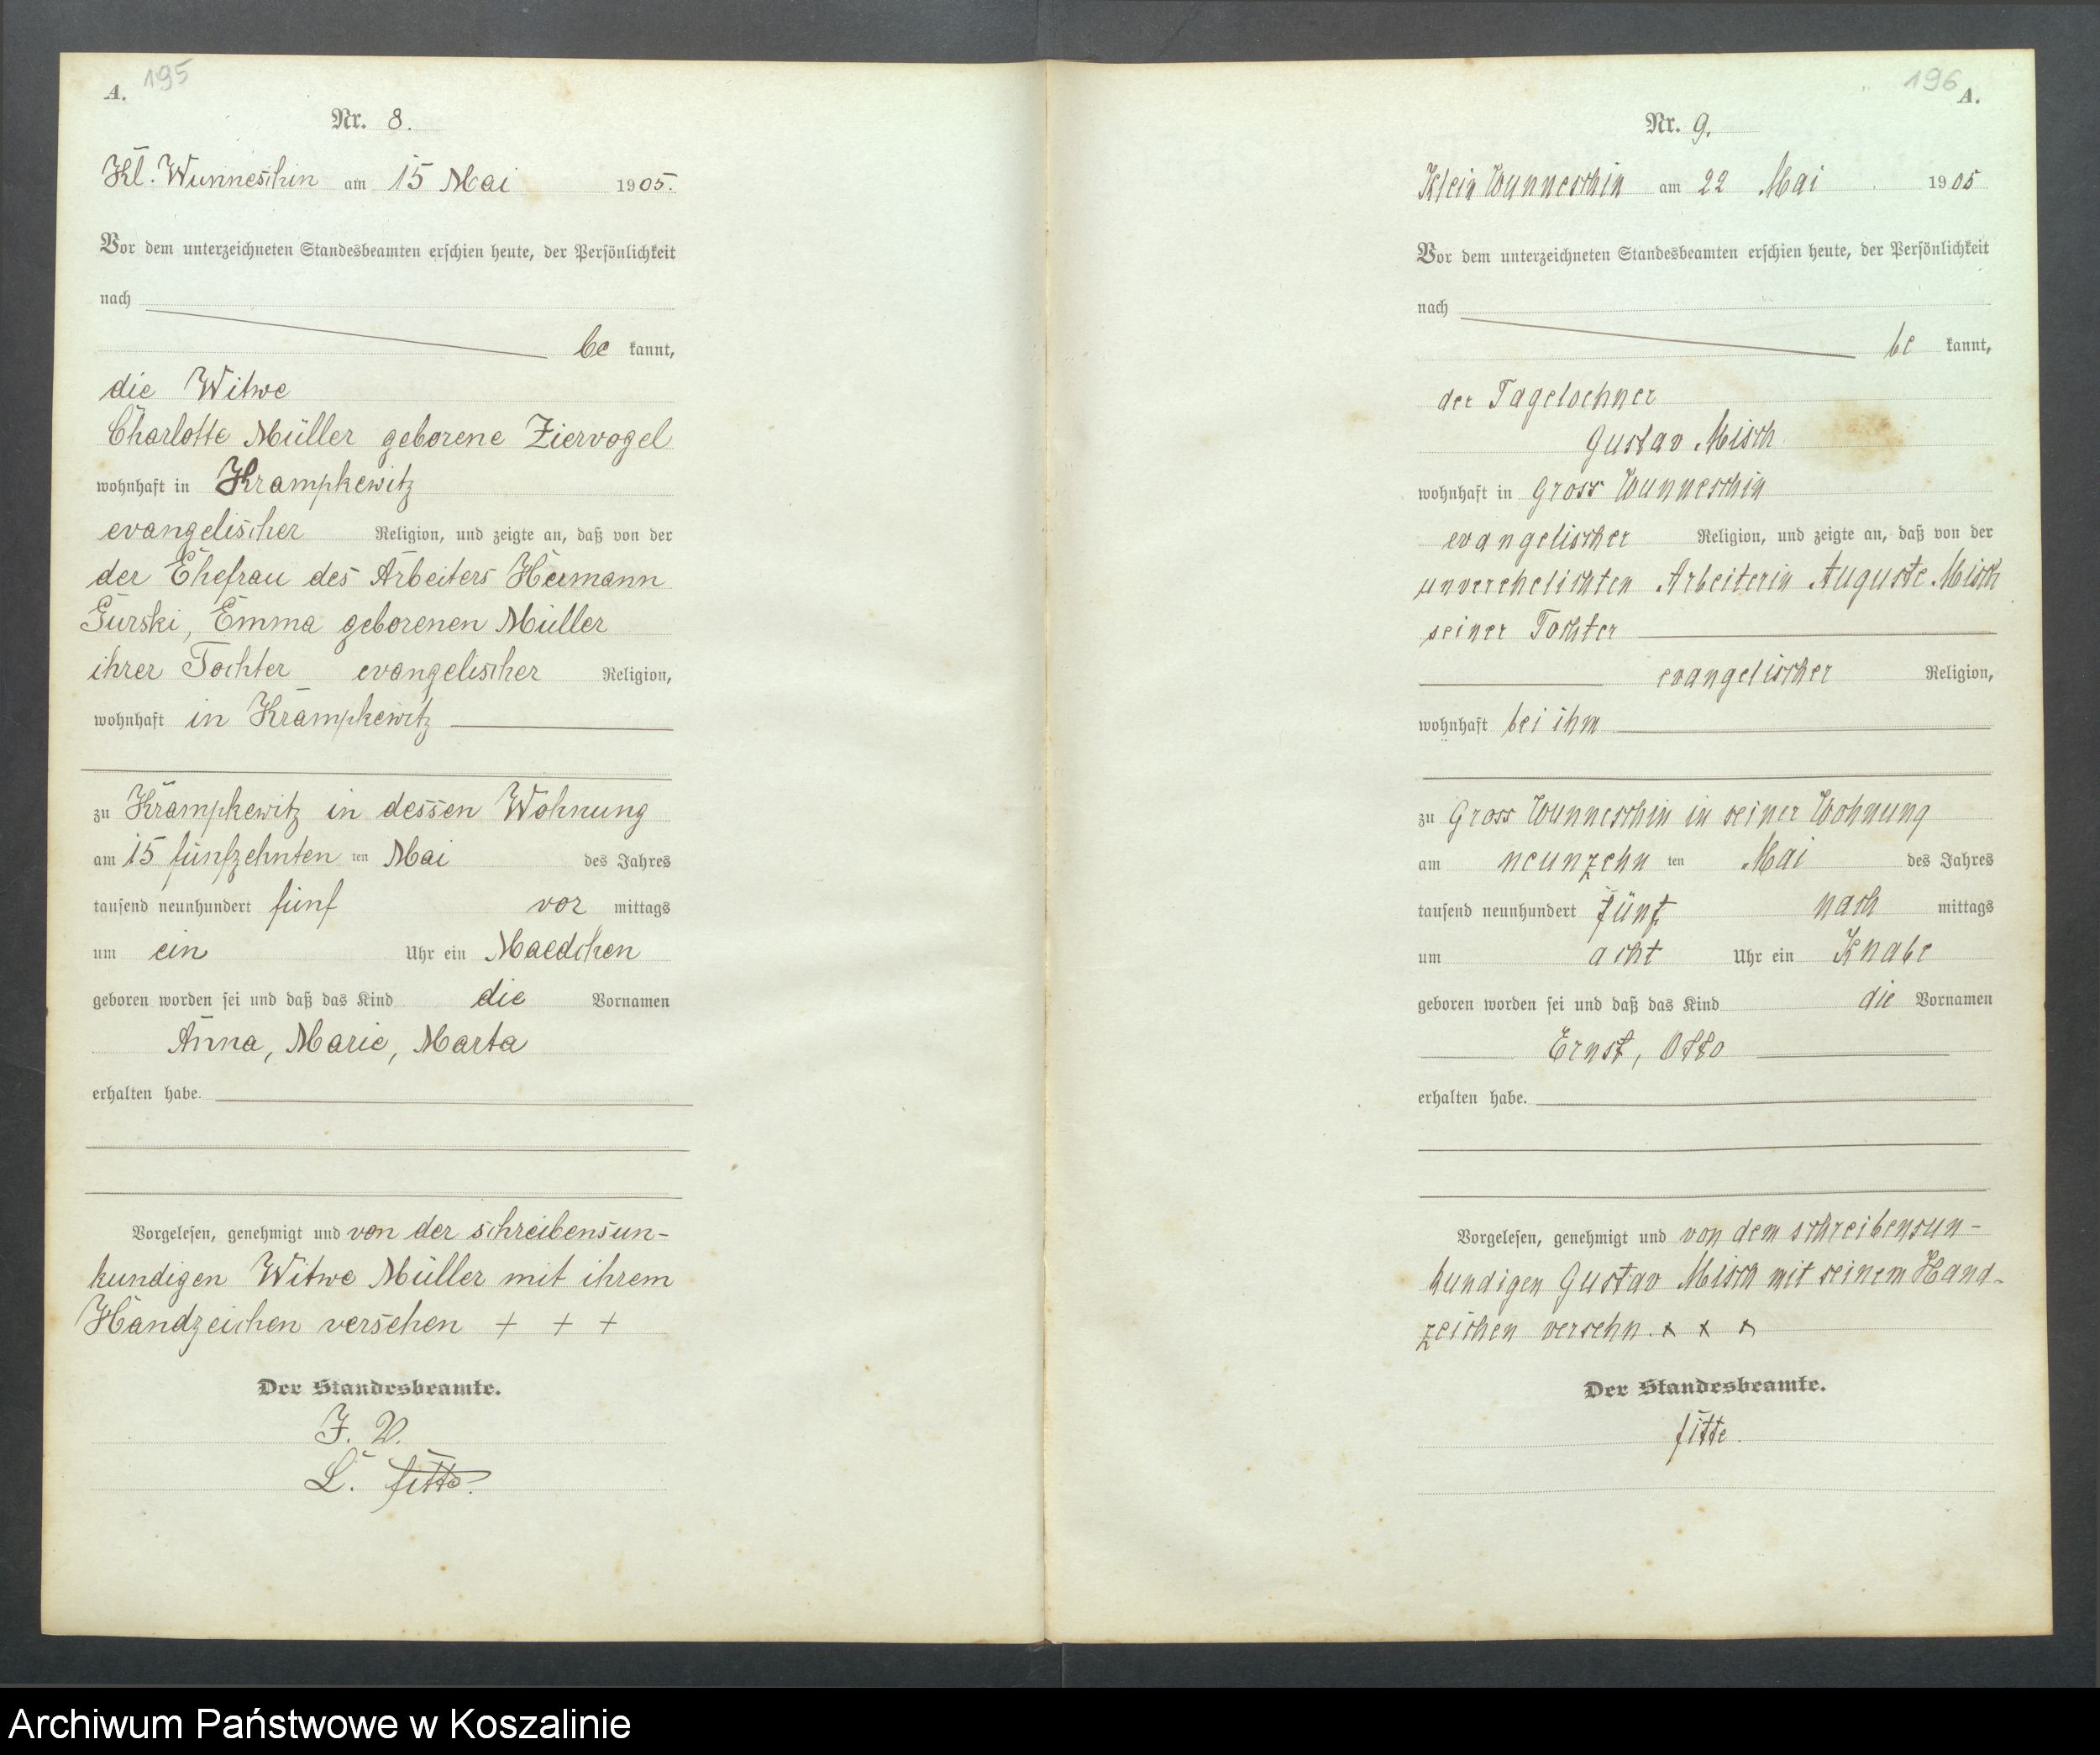 A. 195
Nr. 8.
Kl. Wunneschin am 15 Mai 1905.
Vor dem unterzeichneten Standesbeamten erschien heute, der Persönlichkeit
nach
be kannt,
die Witwe
Charlotte Müller geborene Ziervogel
wohnhaft in Krampkewitz
evangelischer Religion, und zeigte an, daß von der
der Ehefrau des Arbeiters Hermann
Gurski, Emma geborenen Müller
ihrer Tochter evangelischer Religion,
wohnhaft in Krampkewitz
zu Krampkewitz in dessen Wohnung
am 15 fünfzehnten ten Mai des Jahres
tausend neunhundert fünf vor mittags
um ein Uhr ein Maedchen
geboren worden sei und daß das Kind die Vornamen
Anna, Marie, Marta
erhalten habe.
Vorgelesen, genehmigt und von der schreibensun-
kundigen Witwe Müller mit ihrem
Handzeichen versehen + + +
Der Standesbeamte.
J. V.
L. Fitte.
196 A.
Nr. 9.
Klein Wunneschin am 22 Mai 1905
Vor dem unterzeichneten Standesbeamten erschien heute, der Persönlichkeit
nach
be kannt,
der Tageloehner
Gustav Misch
wohnhaft in Gross Wunneschin
evangelischer Religion, und zeigte an, daß von der
unverehelichten Arbeiterin Auguste Misch
seiner Tochter
evangelischer Religion,
wohnhaft bei ihm
zu Gross Wunneschin in seiner Wohnung
am neunzehn ten Mai des Jahres
tausend neunhundert fünf nach mittags
um acht Uhr ein Knabe
geboren worden sei und daß das Kind die Vornamen
Ernst, Otto
erhalten habe.
Vorgelesen, genehmigt und von dem schreibensun-
kundigen Gustav Misch mit seinem Hand-
zeichen versehn. x x x
Der Standesbeamte.
Fitte.
Archiwum Państwowe w Koszalinie